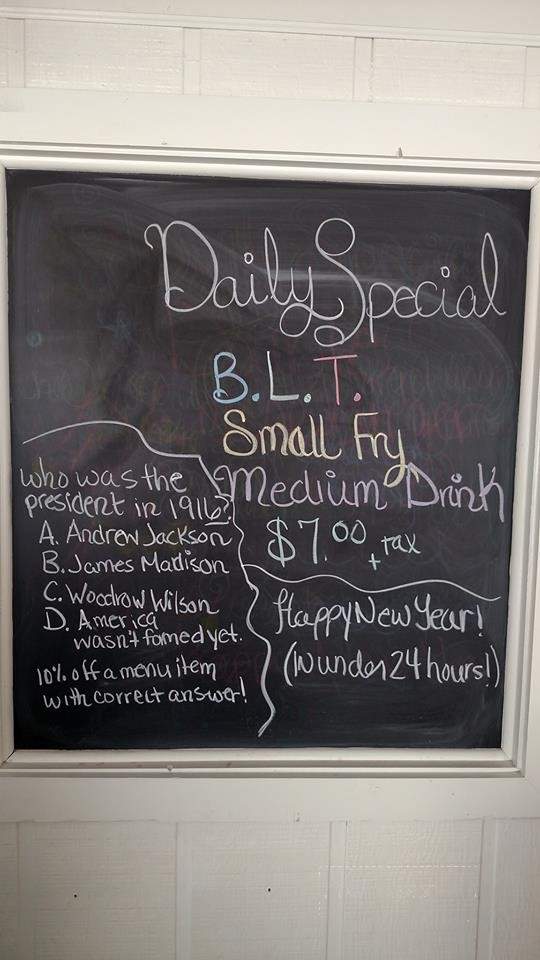 Daily Special
B.L.T.
Small Fry
Medium Drink
$7.00 + tax
who was the
president in 1916?
A. Andrew Jackson
B. James Madison
C. Woodrow Wilson
D. America
wasn't formed yet.
10% off a menu item
with correct answer!
Happy New Year!
(In under 24 hours!)